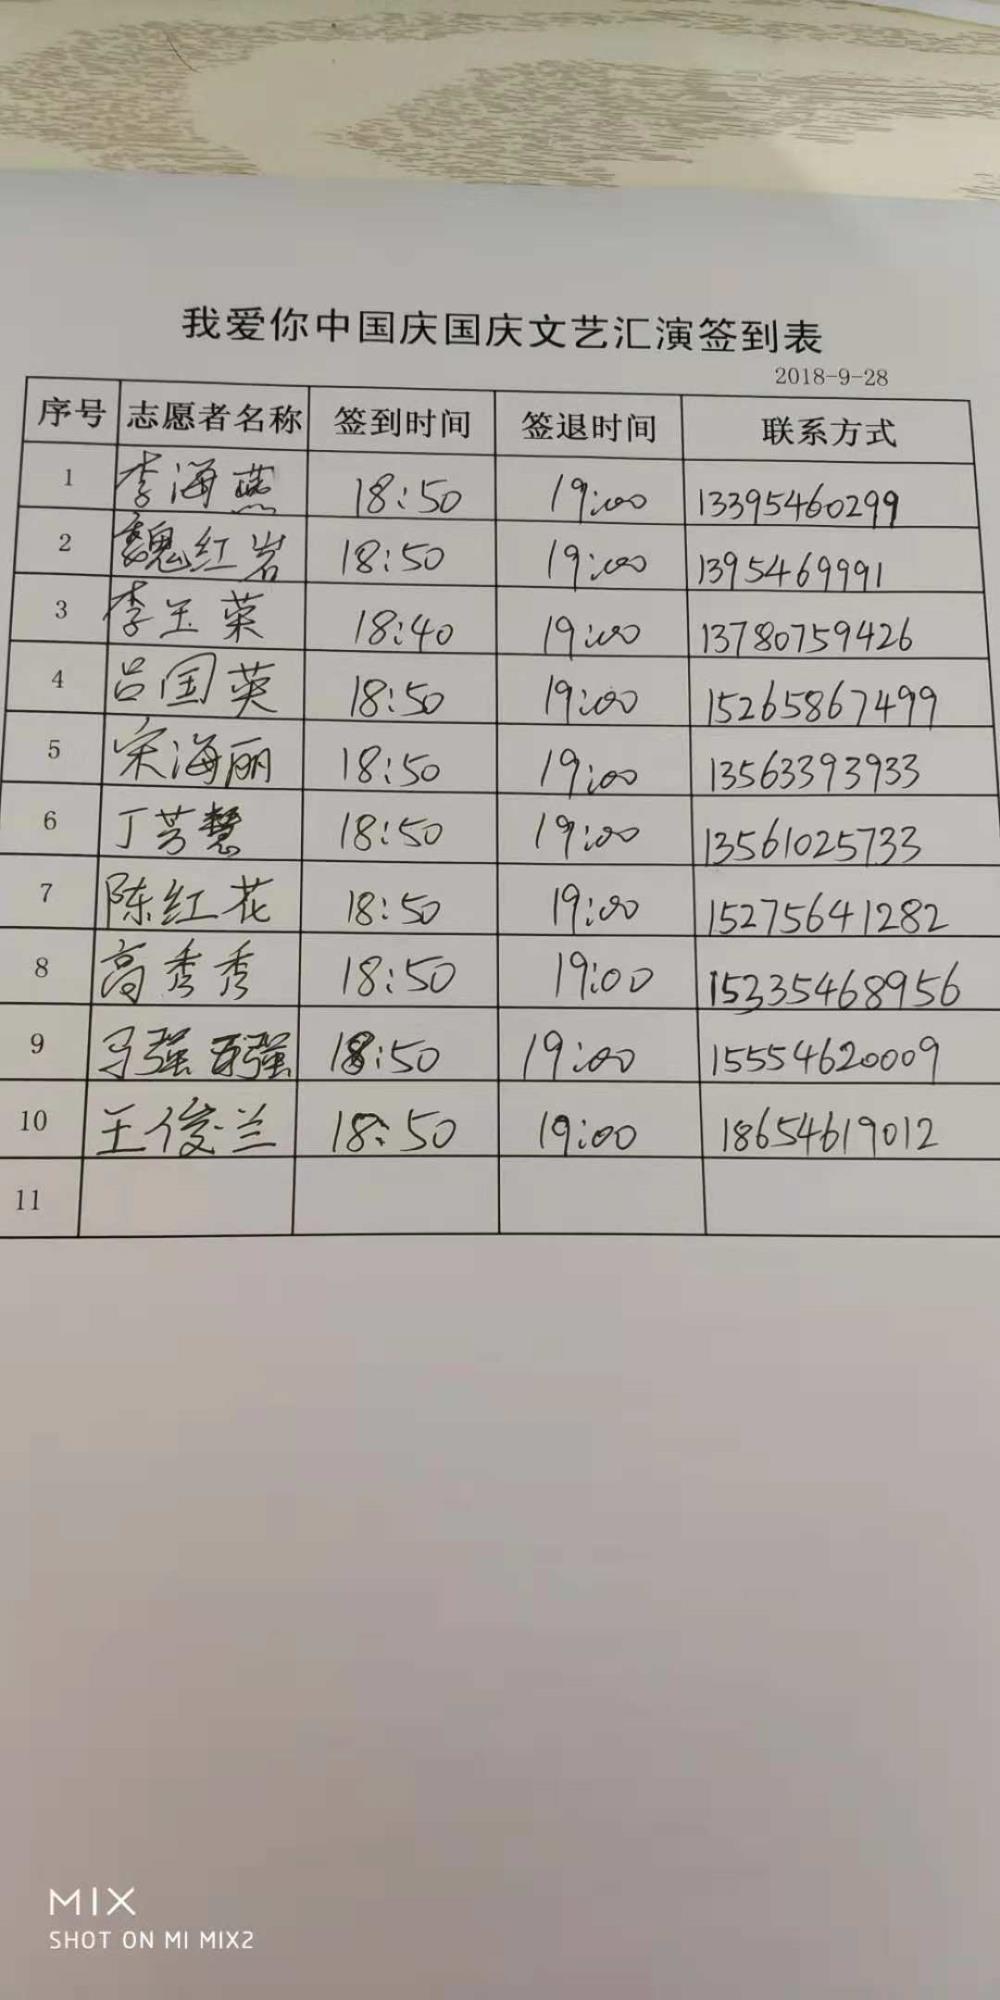 我爱你中国庆国庆文艺汇演签到表
2018-9-28
序号 志愿者名称 签到时间 签退时间 联系方式
1 李海燕 18:50 19:00 13395460299
2 魏红岩 18:50 19:00 1395469991
3 李玉荣 18:40 19:00 13780759426
4 吕国英 18:50 19:00 15265867499
5 宋海丽 18:50 19:00 13563393933
6 丁芳慧 18:50 19:00 13561025733
7 陈红花 18:50 19:00 15275641282
8 高秀秀 18:50 19:00 15235468956
9 马强 18:50 19:00 15554620009
10 王俊兰 18:50 19:00 18654619012
11
MIX
SHOT ON MI MIX2